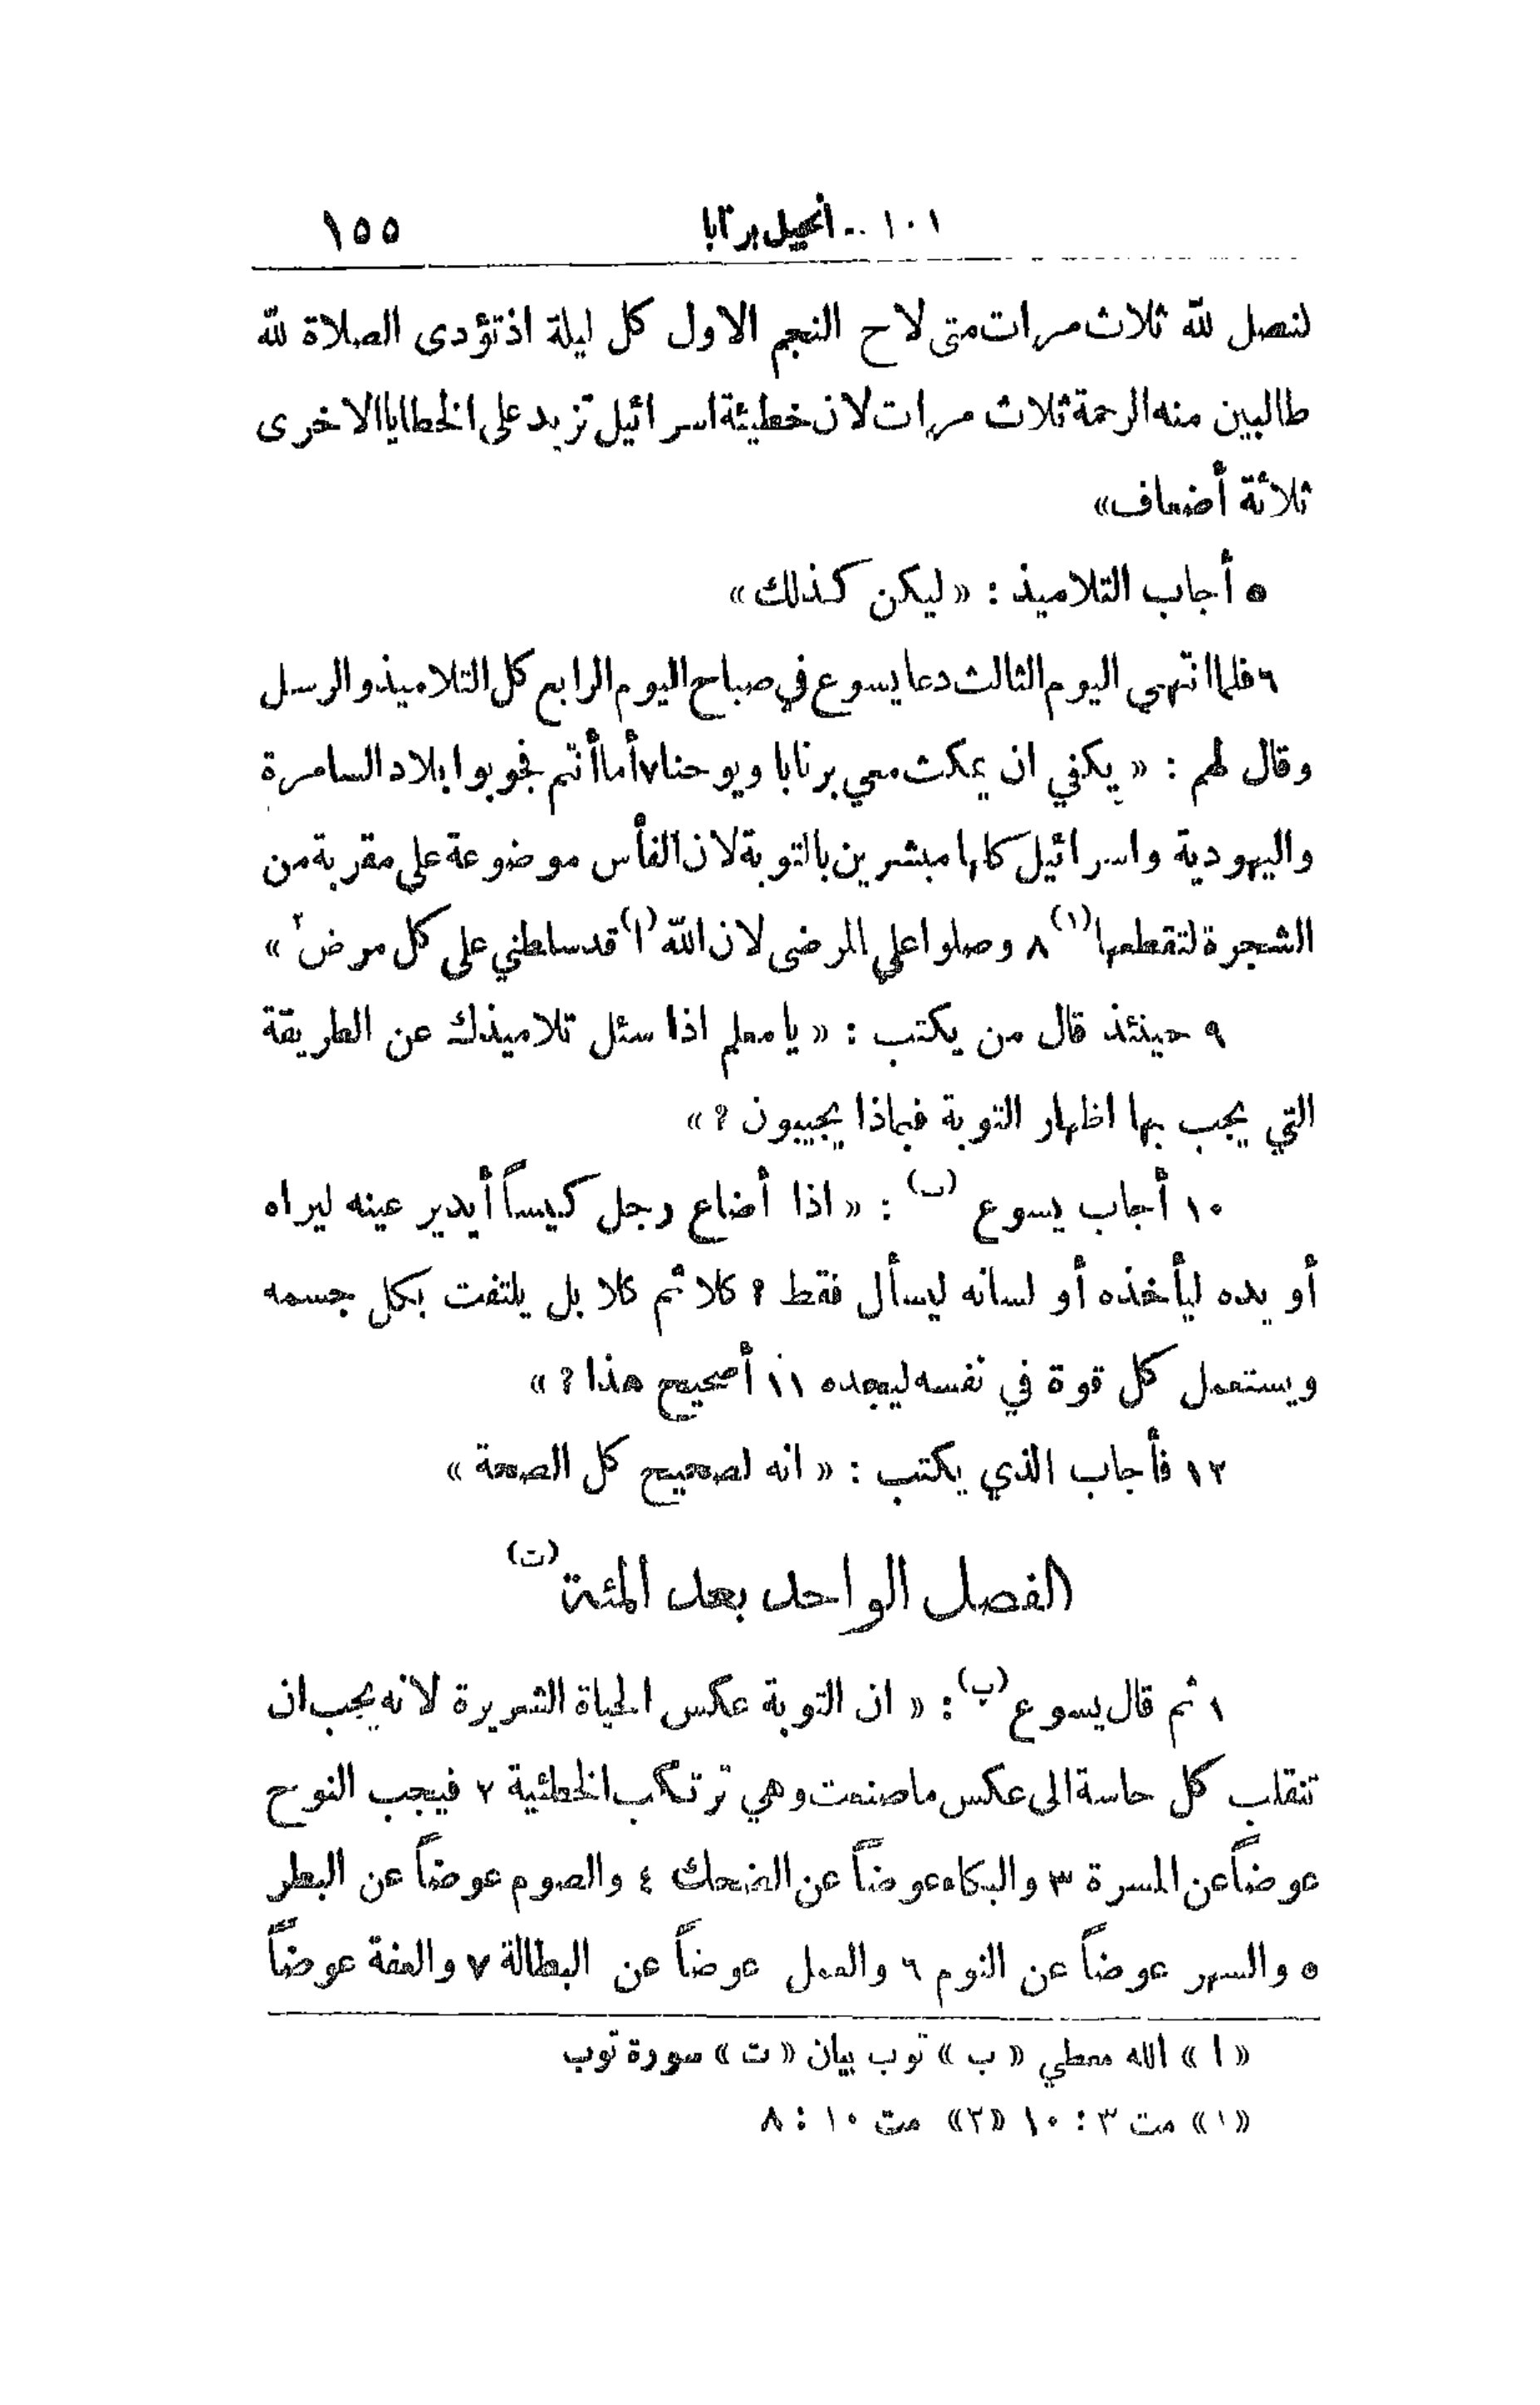 ١٠١ - انجيل برنابا ١٥٥
لنصل لله ثلاث مرات متى لاح النجم الاول كل ليلة اذ تؤدى الصلاة لله
طالبين منه الرحمة ثلاث مرات لان خطيئة اسرائيل تزيد على الخطايا الاخرى
ثلاثة أضعاف»
٥ أجاب التلاميذ : « ليكن كذلك »
٦ فلما انتهى اليوم الثالث دعا يسوع في صباح اليوم الرابع كل التلاميذ والرسل
وقال لهم : « يكفي ان يمكث معي برنابا ويوحنا ٧ أما أنتم فجوبوا بلاد السامرة
واليهودية واسرائيل كلها مبشرين بالتوبة لان الفأس موضوعة على مقربة من
الشجرة لتقطعها (١) ٨ وصلوا على المرضى لان الله (ا) قد سلطني على كل مرض ٢ »
٩ حينئذ قال من يكتب : « يا معلم اذا سئل تلاميذك عن الطريقة
التي يجب بها اظهار التوبة فبماذا يجيبون ؟ »
١٠ أجاب يسوع (ب) : « اذا أضاع رجل كيساً أيدير عينه ليراه
أو يده ليأخذه أو لسانه ليسأل فقط ؟ كلا ثم كلا بل يلتفت بكل جسمه
ويستعمل كل قوة في نفسه ليجده ١١ أصحيح هذا ؟ »
١٢ فأجاب الذي يكتب : « انه لصحيح كل الصحة »
الفصل الواحد بعد المئة (ت)
١ ثم قال يسوع (ب) : « ان التوبة عكس الحياة الشريرة لانه يجب ان
تنقلب كل حاسة الى عكس ما صنعت وهي ترتكب الخطئية ٢ فيجب النوح
عوضاً عن المسرة ٣ والبكاء عوضاً عن الضحك ٤ والصوم عوضاً عن البطر
٥ والسهر عوضاً عن النوم ٦ والعمل عوضاً عن البطالة ٧ والعفة عوضاً
« ا » الله معطي « ب » توب بيان « ت » سورة توب
«١» مت ٣ : ١٠ «٢» مت ١٠ : ٨